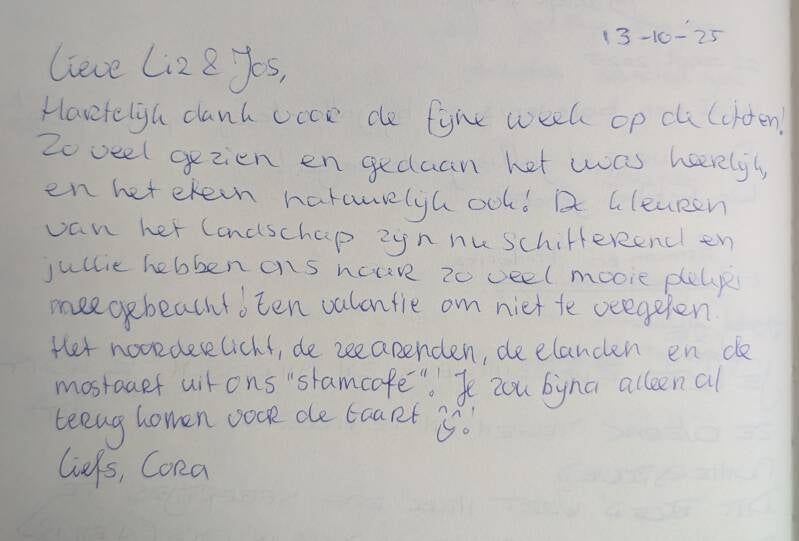 13-10-'25
Lieve Liz & Jos,
Hartelijk dank voor de fijne week op de Lofoten!
Zo veel gezien en gedaan het was heerlijk,
en het eten natuurlijk ook! De kleuren
van het landschap zijn nu schitterend en
jullie hebben ons naar zo veel mooie plekjes
meegebracht! Een vakantie om niet te vergeten.
Het noorderlicht, de zeearenden, de elanden en de
mostaart uit ons "stamcafé"! Je zou bijna alleen al
terug komen voor de taart!
Liefs, Cora